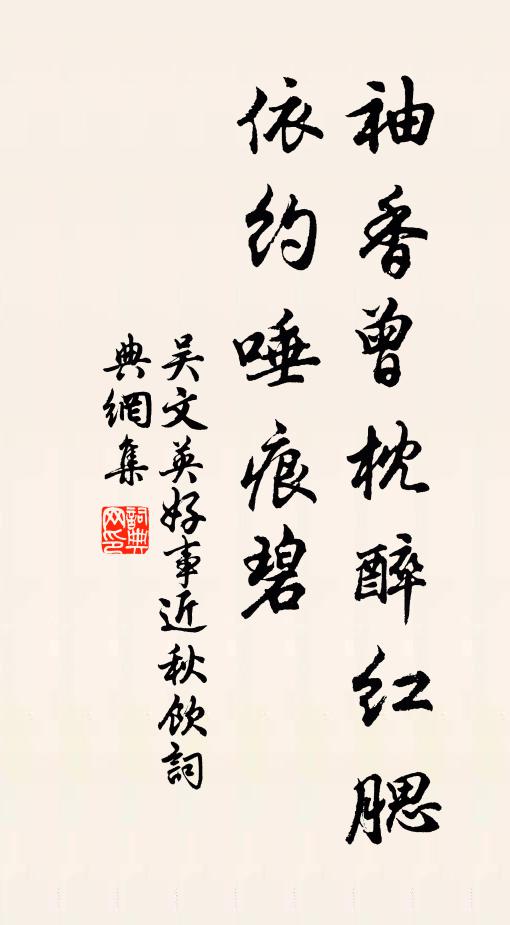 袖香曾枕醉红腮
依约唾痕碧
吴文英好事近秋飲詞
典網集
詞典网印